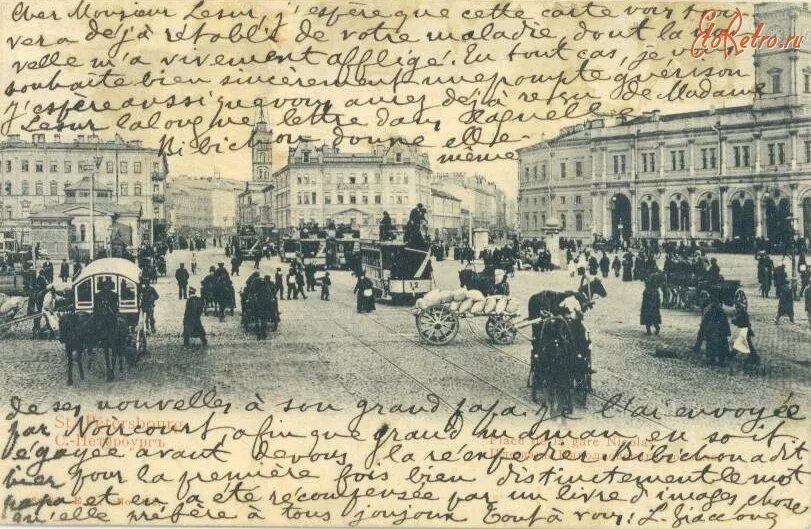 Cher Monsieur Lesur, j'espère que cette carte vous trou
vera déjà rétabli de votre maladie, dont la nou
velle m'a vivement affligé. En tout cas, je vous
souhaite bien sincèrement une prompte guérison
j'espère aussi que vous avez déjà reçu de Madame
Lesur la longue lettre dans laquelle
Bichon donne elle-
même
EtoRetro.ru
12
de ses nouvelles à son grand papa. Je l'ai envoyée
St. Pétersbourg
par Nogent afin que grand maman en soit
С.-Петербургъ
Place de la gare Nicolas
égayée avant de vous la réenfoncer. Bichon a dit
hier pour la première fois bien distinctement le mot
papa et en a été récompensée par un livre d'images chose
qu'elle préfère à tous joujoux Tout à vous; L.